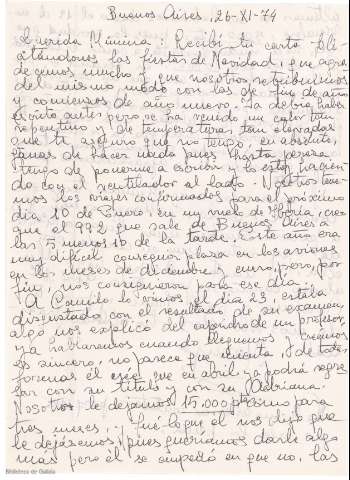 Buenos Aires, 26-XI-74
Querida Minina: Recibí tu carta feli-
citándonos las fiestas de Navidad, que agra-
decemos mucho y que nosotros retribuimos
del mismo modo con las de fin de año
y comienzos de año nuevo. Ya debía haber
escrito antes pero se ha venido un calor tan
repentino y de temperaturas tan elevadas
que te aseguro que no tengo, en absoluto,
ganas de hacer nada pues hasta pereza
tengo de ponerme a escribir y lo estoy hacien-
do con el ventilador al lado. Nosotros tene-
mos los viajes confirmados para el próximo
día 10 de Enero, en un vuelo de Iberia, creo
que el 992 que sale de Buenos Aires a
las 5 menos 10 de la tarde. Este año era
muy difícil conseguir plaza en los aviones
en los meses de diciembre y enero, pero, por
fin, nos consiguieron para ese día.
A Camilo lo vimos el día 23, estaba
disgustado con el resultado de su examen,
algo nos explicó del capricho de un profesor,
ya hablaremos cuando lleguemos y creemos
es sincero, no parece que mienta, y de todas
formas él cree que en abril ya podrá regre-
sar con su título y con su Adriana.
Nosotros le dejamos 15.000 ptas para
tres meses, fué lo que él nos dijo que
le dejásemos, pues queríamos darle algo
más pero él se empeñó en que no. Las
Biblioteca de Galicia